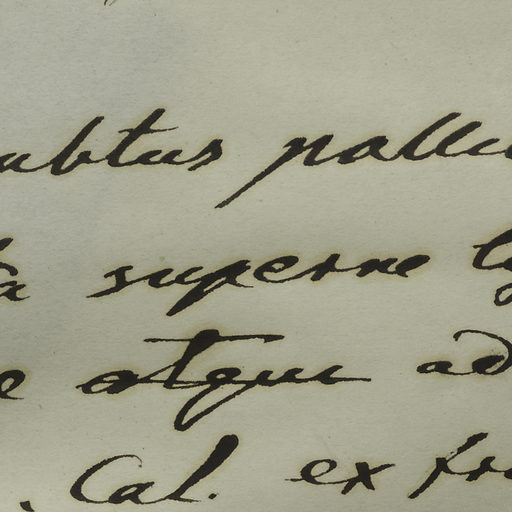 subtus pallu
a superne ly
e atque ad
, Cal. ex fr